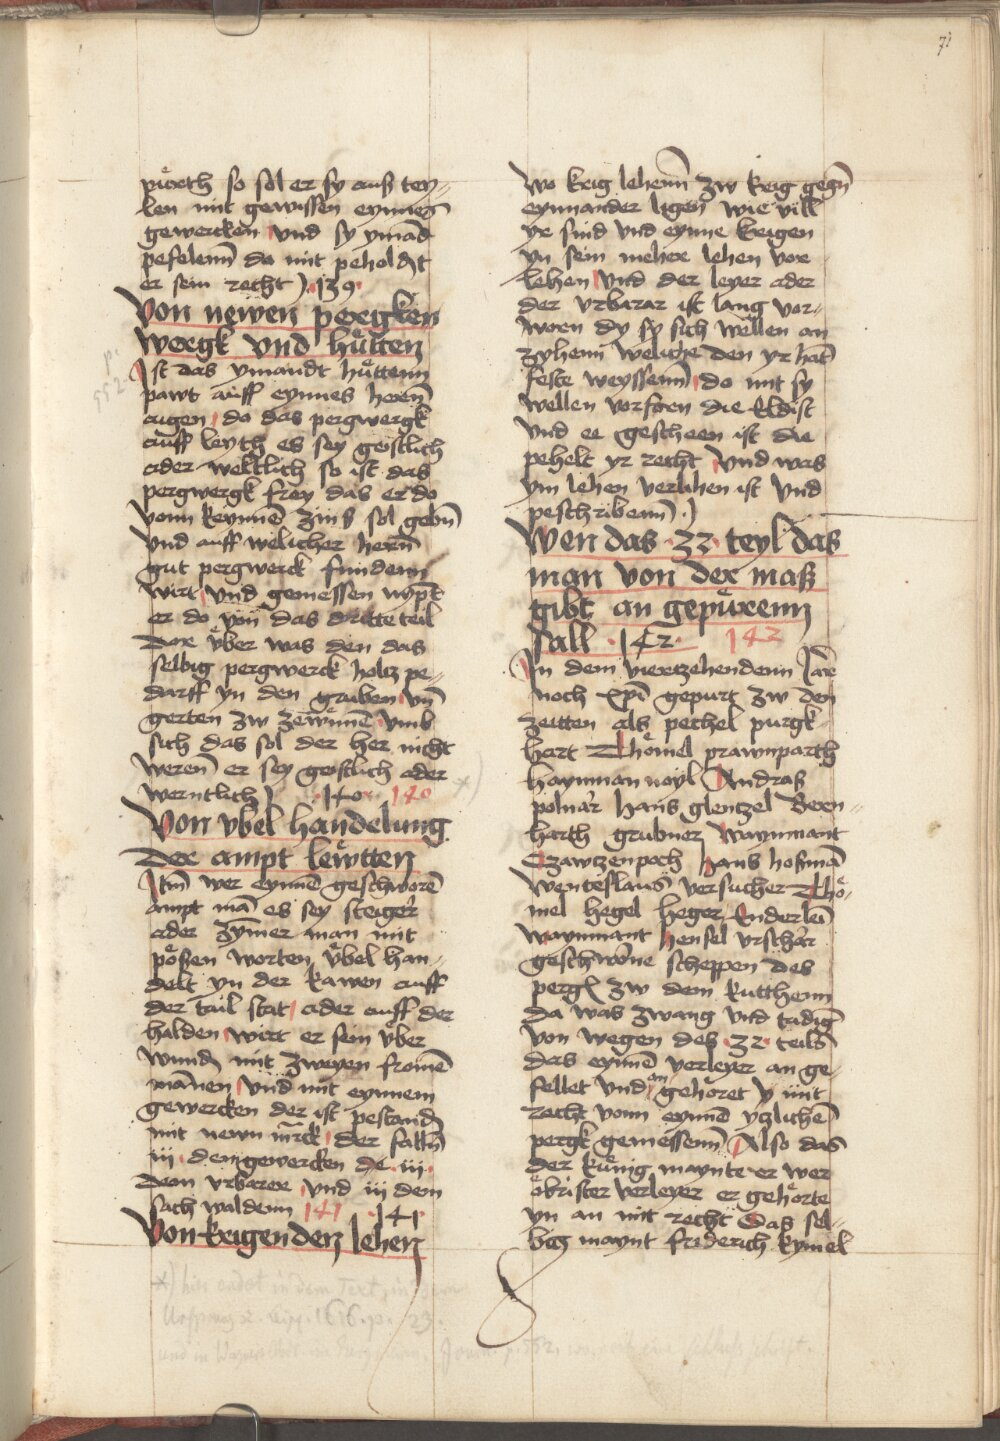 71
püroth so sol er sy auß tey-
len mit gewissen eynnes
gewercken und sy ymãd
pefelenn do mit peheldt
er sein recht) 139
Von newen pergken
wergk und hütten
Ist das ymandt hüttenn
pawt auff eynnes herrn
aigen do das pergwergk
auff leyth es sey geistlich
ader weltlich so ist das
pergwergk frey das er do
vonn keynnē zinß sol gebn
und auff welicher herrn
gut pergwerck fundenn
wirt und gemessen nympt
er do von das dritte teil
Dor über was den das
selbig pergwerck holtz pe-
darff yn den gruben vñ
gerten zw zewnnē umb
sich das sol der her nicht
weren er sey geistlich ader
werntlich) 140 140
Von übel handelung
der ampt lewtten
Itm wer eynnē geschworē
ampt mā es sey steiger
ader zymer man mit
pößen worten übel han-
delt yn der kawen auff
der tail stat ader auff der
halden wirt er sein über
wundn mit zweyen fromē
mannen und mit eynnem
gewercken der ist pestandn
mit newn mrck der falln
iii dem gewercken de iii
dem urbarer und iii dem
sach waldenn 141 141
Von krigenden lehen
Wo krig lehenn zw krig gegn
eynnander ligen wie vill
yr sind und eynne krigen
yn sein mehrer lehen vor
lehen und der leyer ader
der urbarar ist lang vor-
worn dy sy sich wellen an
zyhenn weliche den yr hat
feste weyssenn do mit sy
wellen vorforen die Eldist
und ee gescheen ist die
pehelt yr recht und was
ym lehen verlihen ist und
peschribenn )
Wen das 32 teyl das
man von der maß
gibt an gepürenn
fall 142 142
In dem vierzehendenn Jare
noch xpi gepurt zw den
zeitten als pechel purgk
hart Thomel prawnparth
haynman noyl Andras
polnar hans glentzel Bern-
harth grubner Waynnant
Czawtzenpoch hans hofmā
Wenteslaus versucher Tho-
mel hegel heger Enderlen
waynnant hensel urschar
geschworne scheppen des
pergs zw dem kutthenn
da was zwang und tading
von wegen des 32 teils
das eynnē verleyer an ge-
fellet und an gehöret y mit
recht vonn eynnē yczlichē
pergk gemessenn Also das
der künig maynte er wer
öbrister verleyer er gehörte
yn an mit recht Das sel-
big maynt friderich kymel